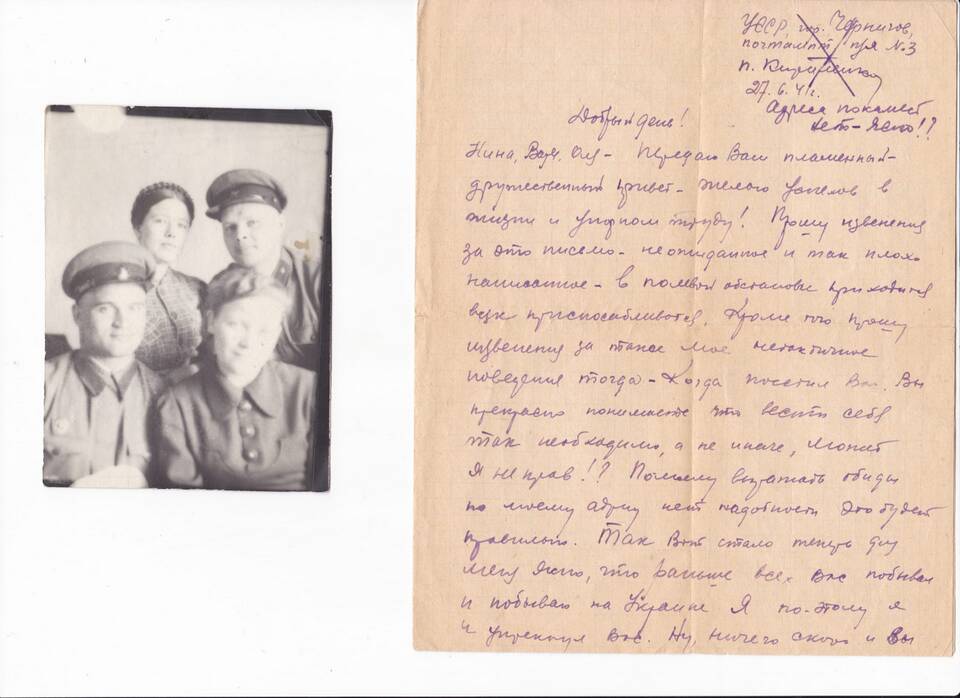 УССР, гор. Чернигов,
почтампт п/я №3
п.
27.6.41г.
Адреса покамест
нето-Ясно!?
Добрый день!
Нина, Валя, Оля - Передаю Вам пламенный-
дружественный привет - желаю успехов в
жизни и упорном труду! Прошу извенения
за это письмо - неожиданное и так плохо
написанное - в полевой обстановке приходится
всяк приспосабливатся. Кроме того прошу
извенения за также мое нетактичное
поведения тогда - Когда посетил Вас. Вы
прекрасно понимаете что вести себя
так необходимо, а не иначе, Может
Я не прав!? Почему выражать обиды
по моему адресу нет надобности Это будет
правильно. Так Вот стало теперь для
меня Ясно, что раньше всех Вас побывал
и побываю на Украине Я по-этому я
и упрекнул Вас. Ну, ничего скоро и Вы